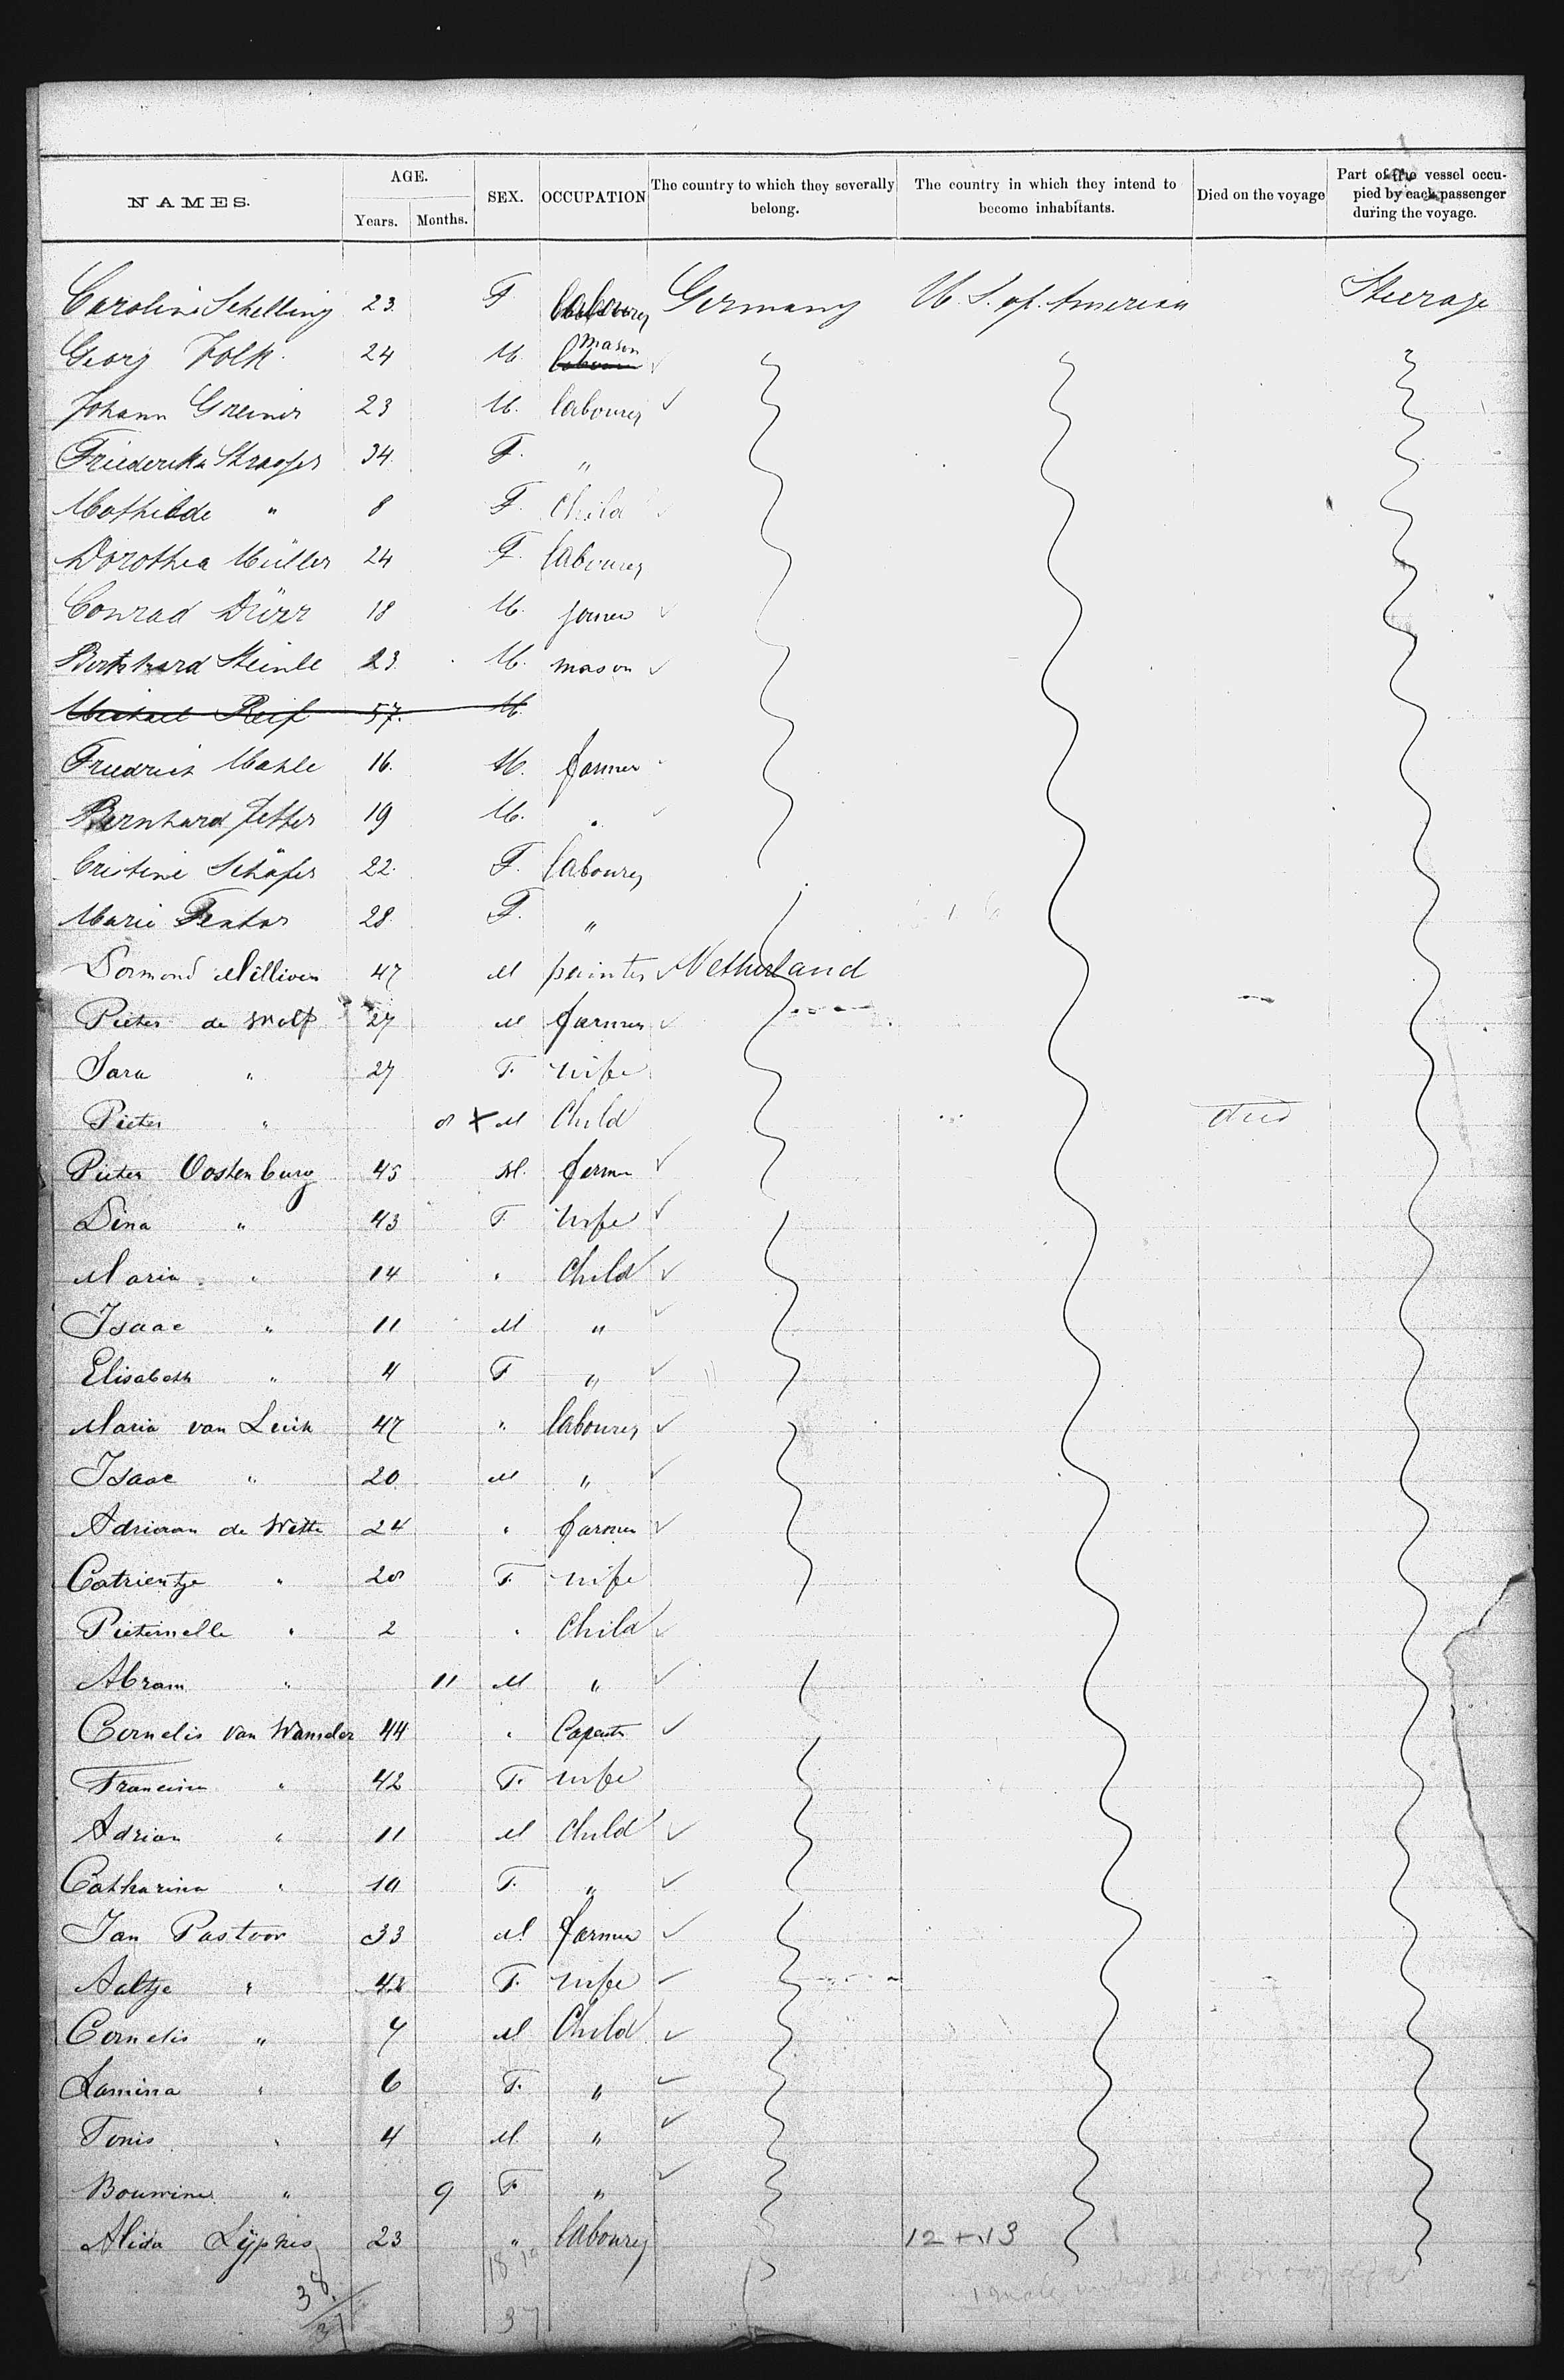 NAMES. AGE. Years. Months. SEX. OCCUPATION The country to which they severally belong. The country in which they intend to become inhabitants. Died on the voyage Part of the vessel occupied by each passenger during the voyage.
Caroline Schelling 23. F labourer Germany U. S. of. America Steerage
Georg Volk 24 M. mason
Johann Greiner 23 M. labourer ✓
Friederika 34. F. "
Mathilde " 8 F. Child
Dorothea Müller 24 F. labourer
Conrad Dürr 18 M. ✓
Steinle 23. M. mason ✓
Michael Reif 57. M.
Friedrich Mahle 16. M. farmer
Bernhard Jetter 19 M. "
Cristine Schäfer 22. F. labourer
Marie 28. F. "
47 M painter ✓ Netherland
Pieter de Wolf 27 M farmer ✓
Sara " 27 F. wife
Pieter " 8 X M Child died
Pieter Oostenburg 45 M. ✓
Dina " 43 F. wife ✓
Maria " 14 " Child ✓
Isaac " 11 M " ✓
Elisabeth " 4 F " ✓
Maria van 47 " labourer ✓
Isaac " 20 M " ✓
Adriaan de Witte 24 " farmer ✓
Catrientje " 20 F. wife
Pieternella " 2 " Child ✓
Abram " 11 M " ✓
Cornelis van 44 " ✓
Francina " 42 F. wife
Adrian " 11 M Child ✓
Catharina " 10 F. " ✓
Jan Pastoor 33 M farmer ✓
Aaltje " 42 F. wife ✓
Cornelis " 7 M Child ✓
Lamina " 6 F. " ✓
Tonis " 4 M. " ✓
" 9 F " ✓
Alida 23 " labourer 12 + 13
38 18
37 37